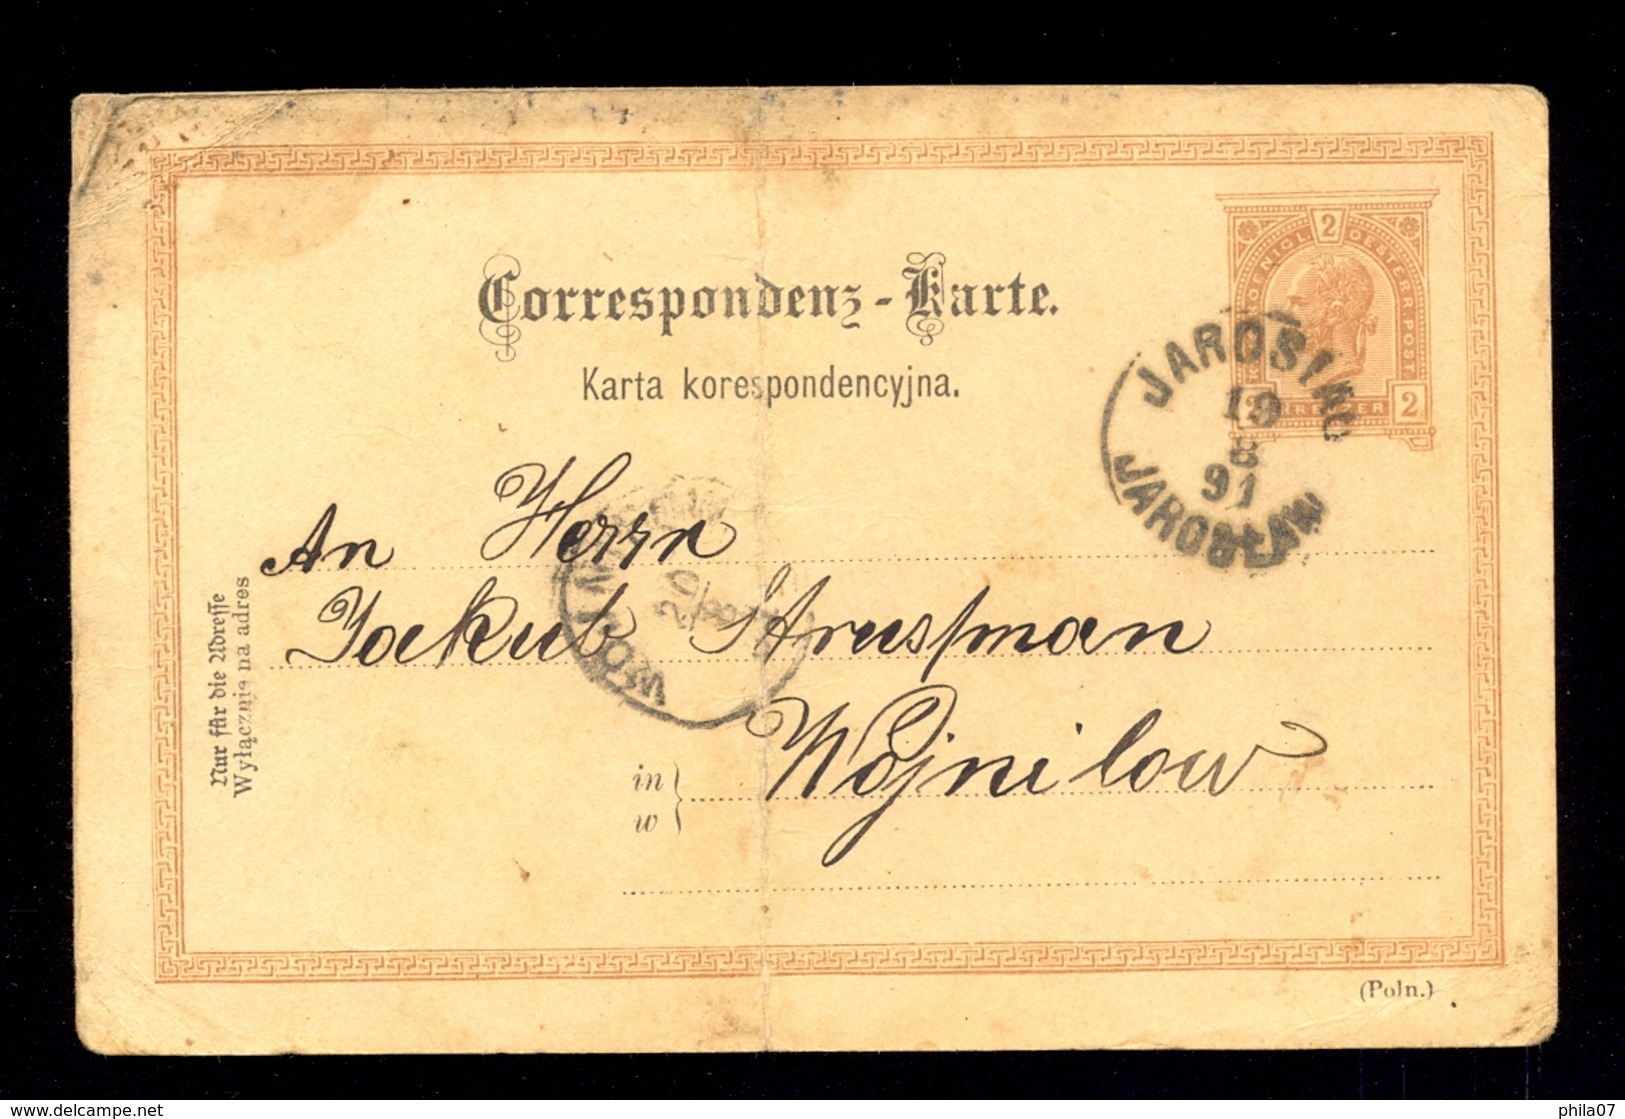 Correspondenz-Karte.
Karta korespondencyjna.
2
KOENIGL. OESTERR. POST.
2
JAROSŁAU
19
8
91
JAROSŁAW
An Herrn
Jakub Strussman
in
w
Wojnilow
20
Nur für die Adresse
Wyłącznie na adres
(Poln.)
delcampe.net
phila07